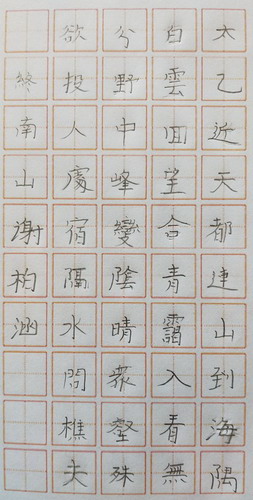 太乙近天都連山到海隅
白雲回望合青靄入看無
分野中峰變陰晴衆壑殊
欲投人處宿隔水問樵夫
終南山谢柏涵